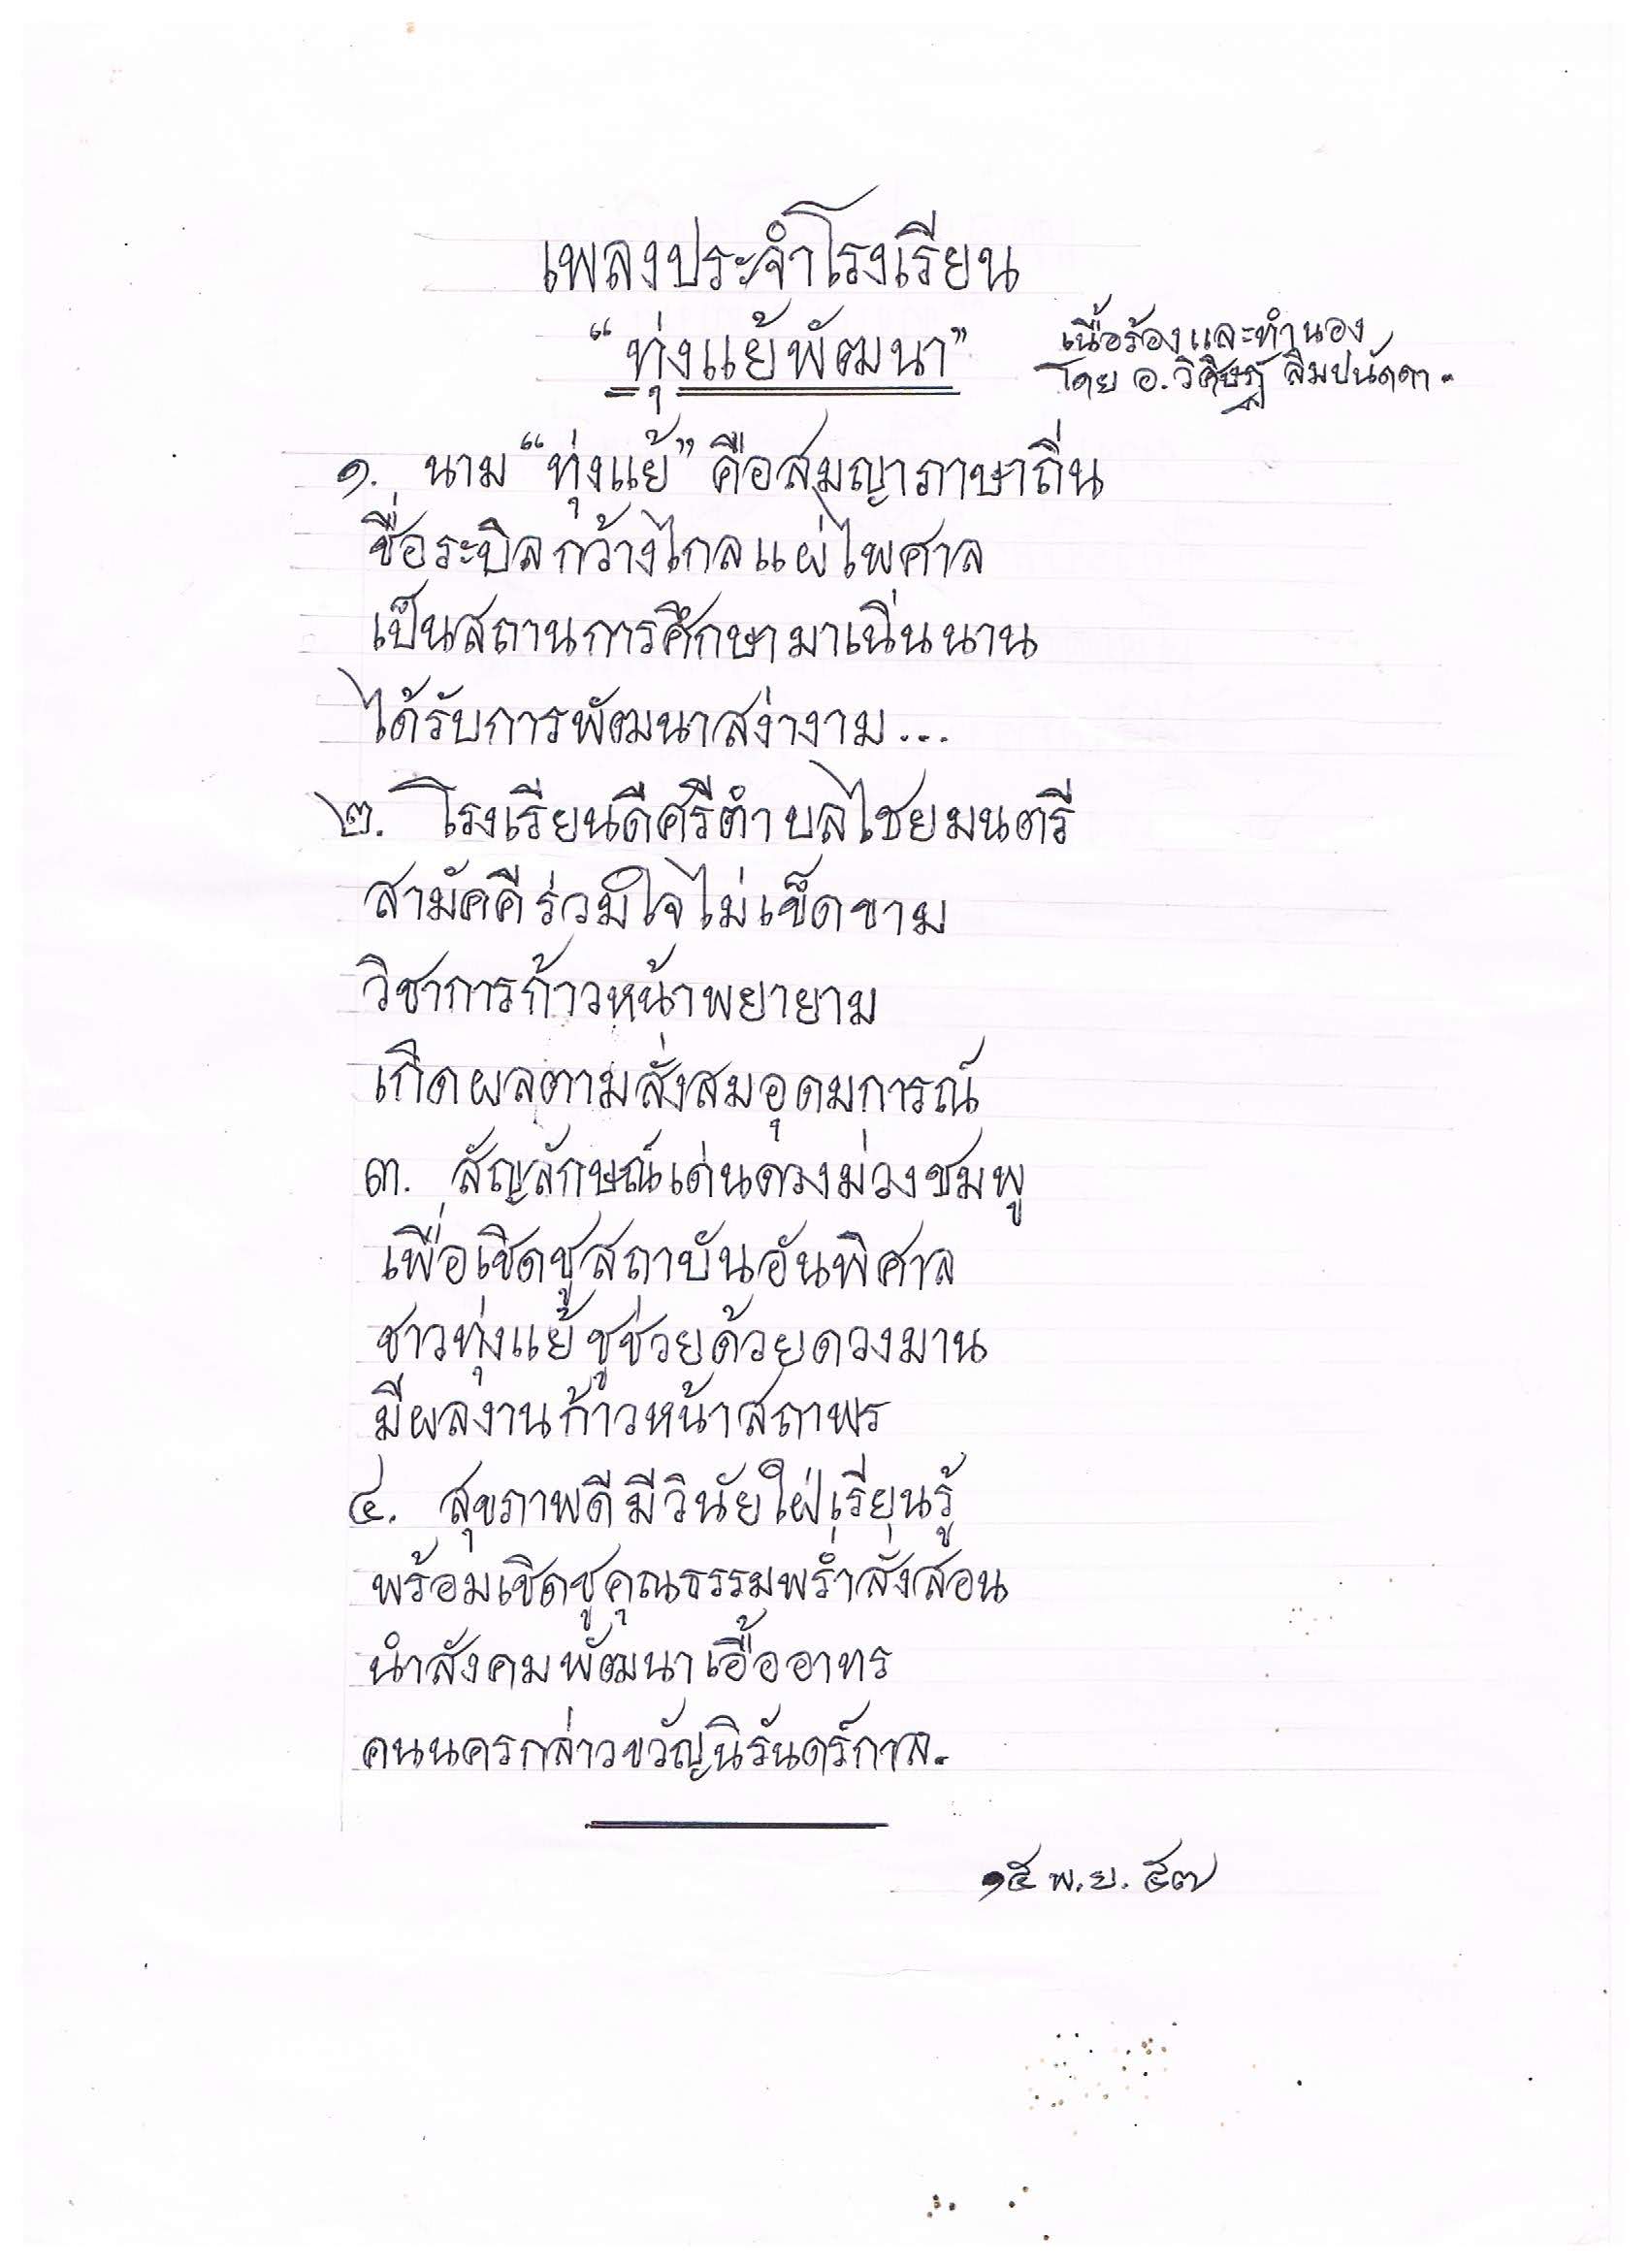 เพลงประจำโรงเรียน
“ทุ่งแย้พัฒนา”
เนื้อร้องและทำนอง
โดย อ.วิศิษฏ์ ลิมปนัดดา.
๑. นาม “ทุ่งแย้” คือสมญาภาษาถิ่น
ชื่อระบิลกว้างไกลแผ่ไพศาล
เป็นสถานการศึกษามาเนิ่นนาน
ได้รับการพัฒนาสง่างาม...
๒. โรงเรียนดีศรีตำบลไชยมนตรี
สามัคคีร่วมใจไม่เข็ดขาม
วิชาการก้าวหน้าพยายาม
เกิดผลตามสั่งสมอุดมการณ์
๓. สัญลักษณ์เด่นดวงม่วงชมพู
เพื่อเชิดชูสถาบันอันพิศาล
ชาวทุ่งแย้ชูช่วยด้วยดวงมาน
มีผลงานก้าวหน้าสถาพร
๔. สุขภาพดีมีวินัยใฝ่เรียนรู้
พร้อมเชิดชูคุณธรรมพร่ำสั่งสอน
นำสังคมพัฒนาเอื้ออาทร
คนนครกล่าวขวัญนิรันดร์กาล.
๑๕ พ.ย. ๕๗